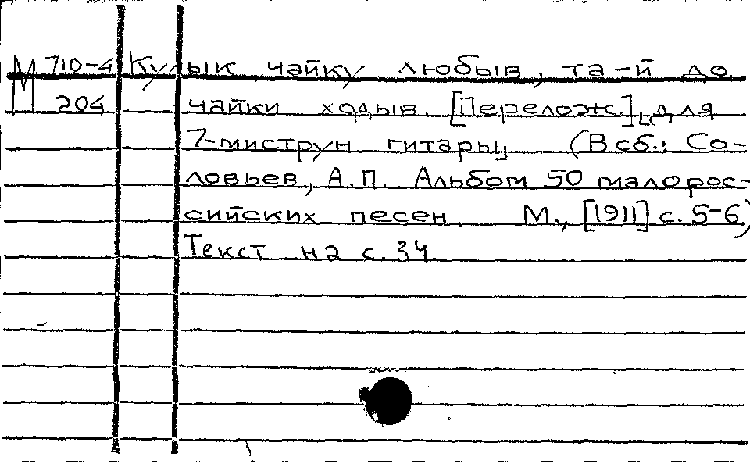 М 710-4 Кулык чайку любыв, та-й до
204 чайки ходыв. [Перелож.] для
7-миструн гитары (В сб.: Со-
ловьев, А.П. Альбом 50 малорос-
сийских песен. М., [1911] с. 5-6)
Текст на с. 34